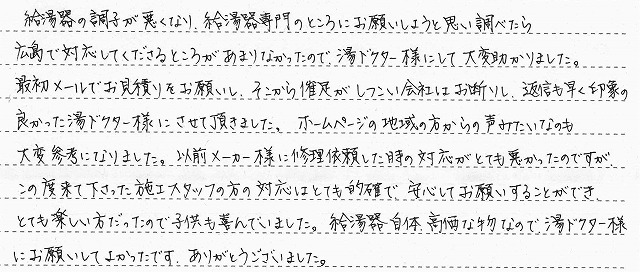 給湯器の調子が悪くなり、給湯器専門のところにお願いしようと思い調べたら
広島で対応してくださるところがあまりなかったので、湯ドクター様にして大変助かりました。
最初メールでお見積りをお願いし、そこから催促がしつこい会社はお断りし、返信も早く印象の
良かった湯ドクター様にさせて頂きました。 ホームページの地域の方からの声みたいなのも
大変参考になりました。以前メーカー様に修理依頼した時の対応がとても悪かったのですが
この度来て下さった施工スタッフの方の対応はとても的確で、安心してお願いすることができ
とても楽しい方だったので子供も喜んでいました。給湯器自体、高価な物なので湯ドクター様
にお願いしてよかったです。ありがとうございました。